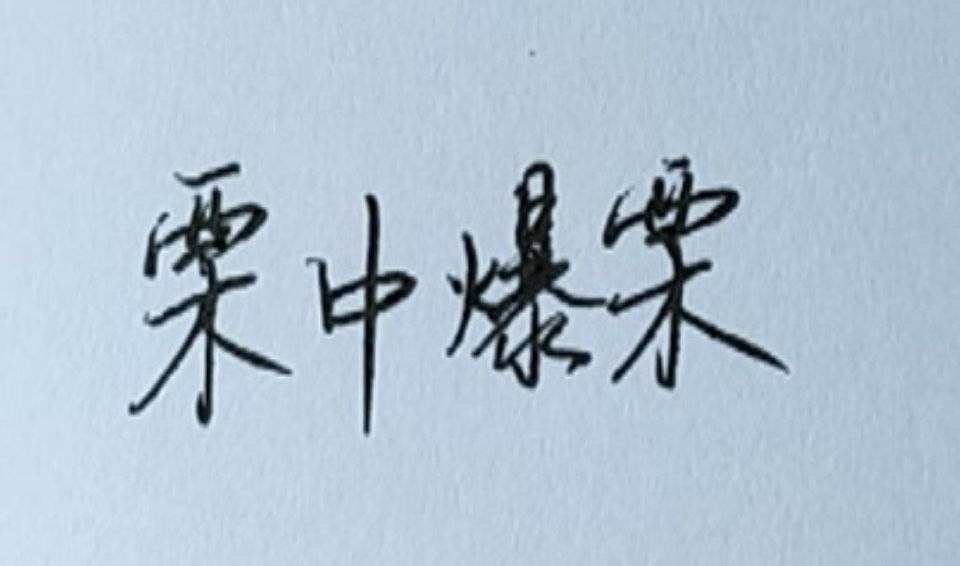 栗中爆栗